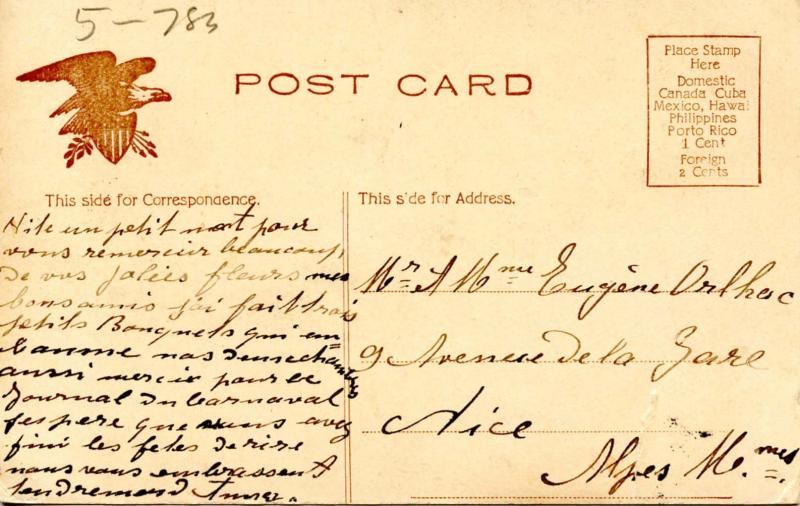 5-783
POST CARD
Place Stamp
Here
Domestic
Canada Cuba
Mexico, Hawai
Philippines
Porto Rico
1 Cent
Foreign
2 Cents
This side for Correspondence.
Vite un petit mot pour
vous remercier beaucoup,
De vos jolies fleurs mes
bons amis j'ai fait trois
petits Bouquets qui em=
baume nos deuxe chambres
aussi merci pour le
Journal Du Carnaval
j'espere que vous avez
fini les fetes de rire
nous vous embrassent
tendremend
This s'de for Address.
Mr et Mme Eugène Orlhac
9 Avenue De la Gare
Nice
Alpes M.mes